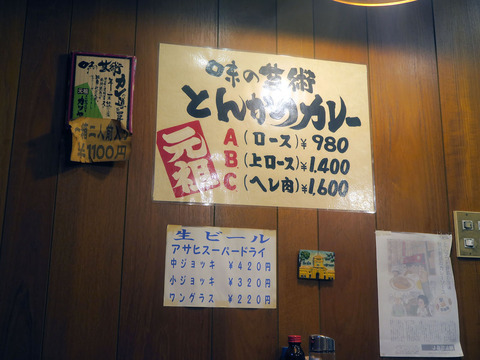 味の芸術
とんかつカレー
元祖
A (ロース) ¥980
B (上ロース) ¥1,400
C (ヘレ肉) ¥1,600
味の芸術
¥1100円
生ビール
アサヒスーパードライ
中ジョッキ ¥420円
小ジョッキ ¥320円
ワングラス ¥220円